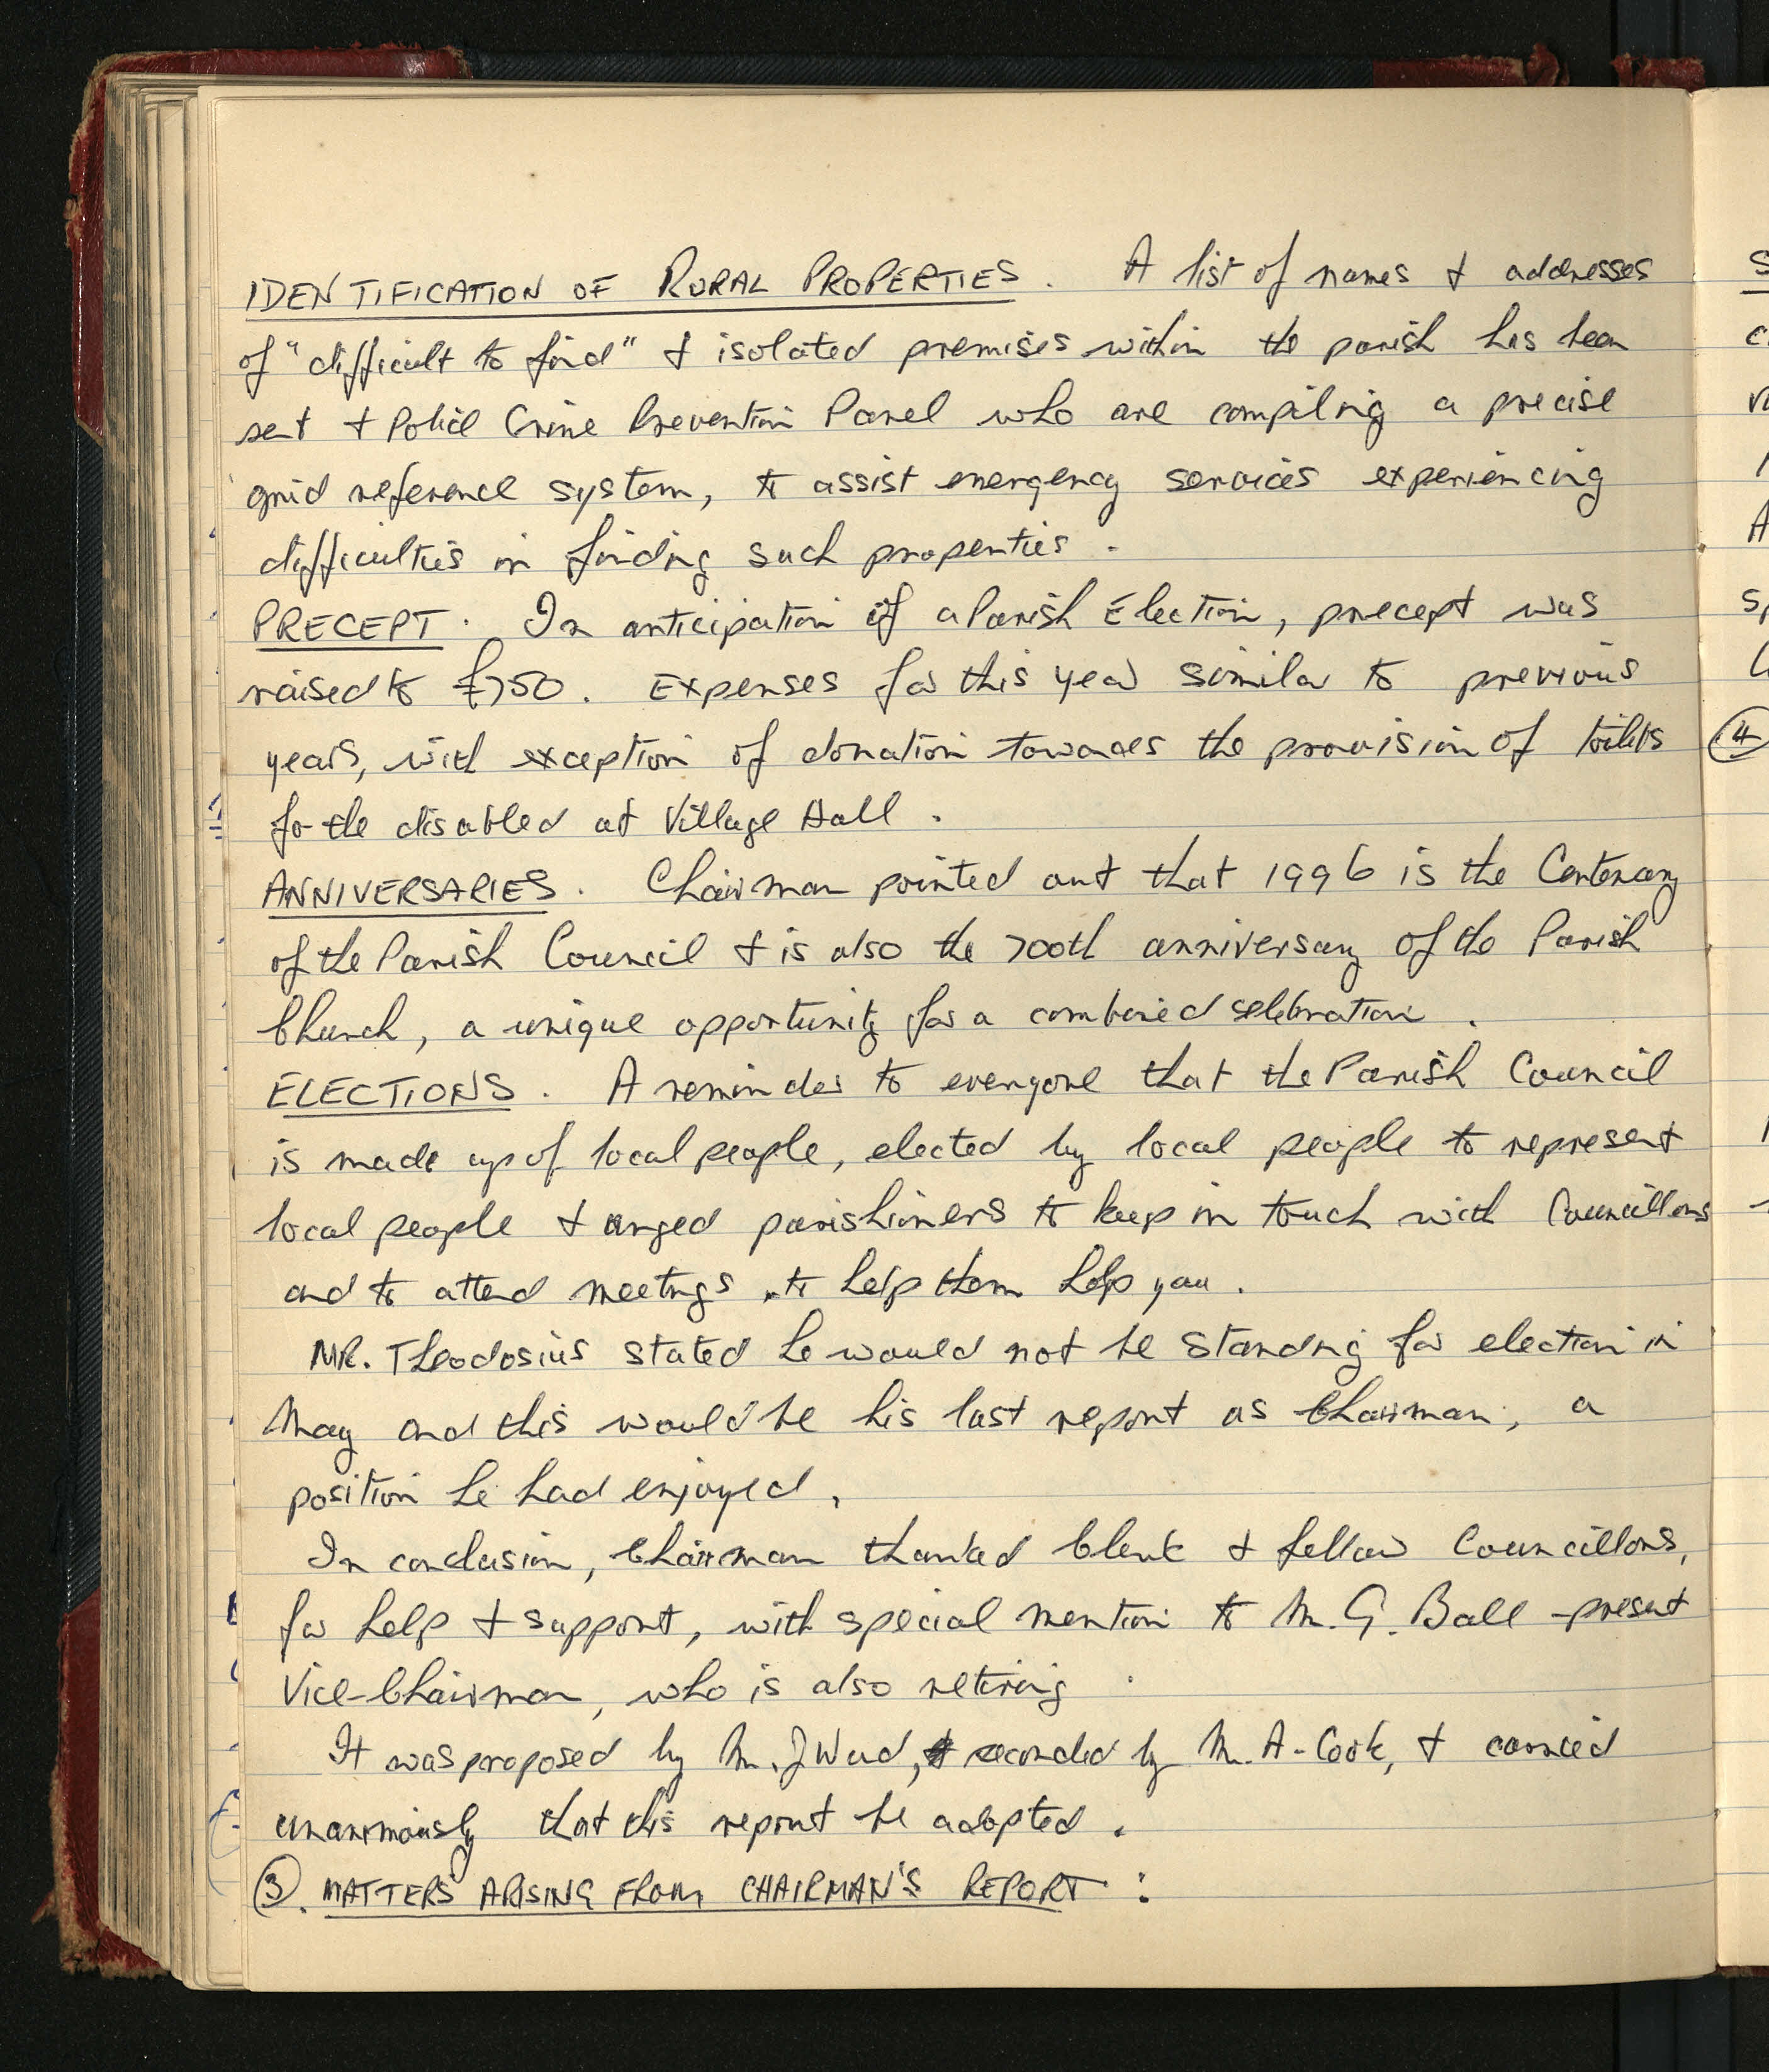 IDENTIFICATION OF RURAL PROPERTIES. A list of names & addresses
of "difficult to find" & isolated premises within the parish has been
sent t Police Crime Prevention Panel who are compiling a precise
grid reference system, to assist emergency services experiencing
difficulties in finding such properties.
PRECEPT. In anticipation of a Parish Election, precept was
raised to £750. Expenses for this year similar to previous
years, with exception of donation towards the provision of toilets
for the disabled at Village Hall.
ANNIVERSARIES. Chairman pointed out that 1996 is the Centenary
of the Parish Council & is also the 700th anniversary of the Parish
Church, a unique opportunity for a combined selebration.
ELECTIONS. A reminder to everyone that the Parish Council
is made up of local people, elected by local people to represent
local people & urged parishioners to keep in touch with Councillors
and to attend meetings to help them help you.
MR. Theodosius stated he would not be standing for election in
May and this would be his last report as Chairman, a
position he had enjoyed.
In conclusion, Chairman thanked Clerk & fellow Councillors,
for help & support, with special mention to Mr. G. Ball - present
Vice-Chairman, who is also retiring
It was proposed by Mr. J Ward, seconded by Mr. A. Cook, & carried
unanimously that this report be adopted.
③. MATTERS ARISING FROM CHAIRMAN'S REPORT :
④